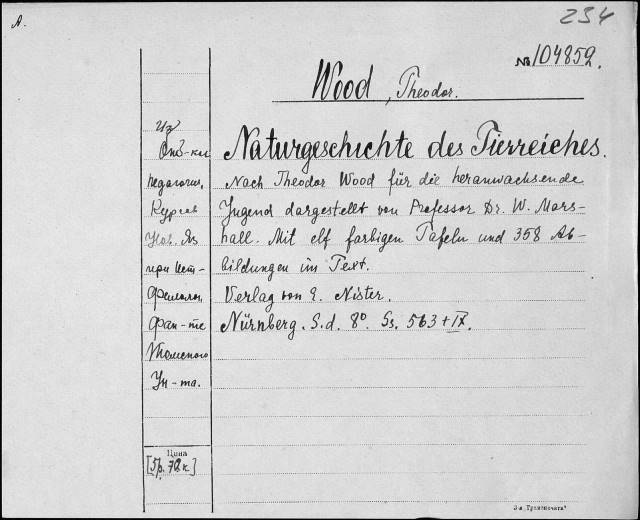 А.
234
№ 104852.
Wood, Theodor.
Из
Биб-ки
педагогич.
Курсов
Нов. Яз
при Ист-
Филолог.
Фак-те
Томского
Ун-та.
Naturgeschichte des Tierreiches.
Nach Theodor Wood für die heranwachsende
Jugend dargestellt von Professor Dr. W. Mars-
hall. Mit elf farbigen Tafeln und 358 Ab-
bildungen im Text.
Verlag von E. Nister.
Nürnberg. S.d. 8°. Ss. 563 + IX.
Цена
[5р. 72к]